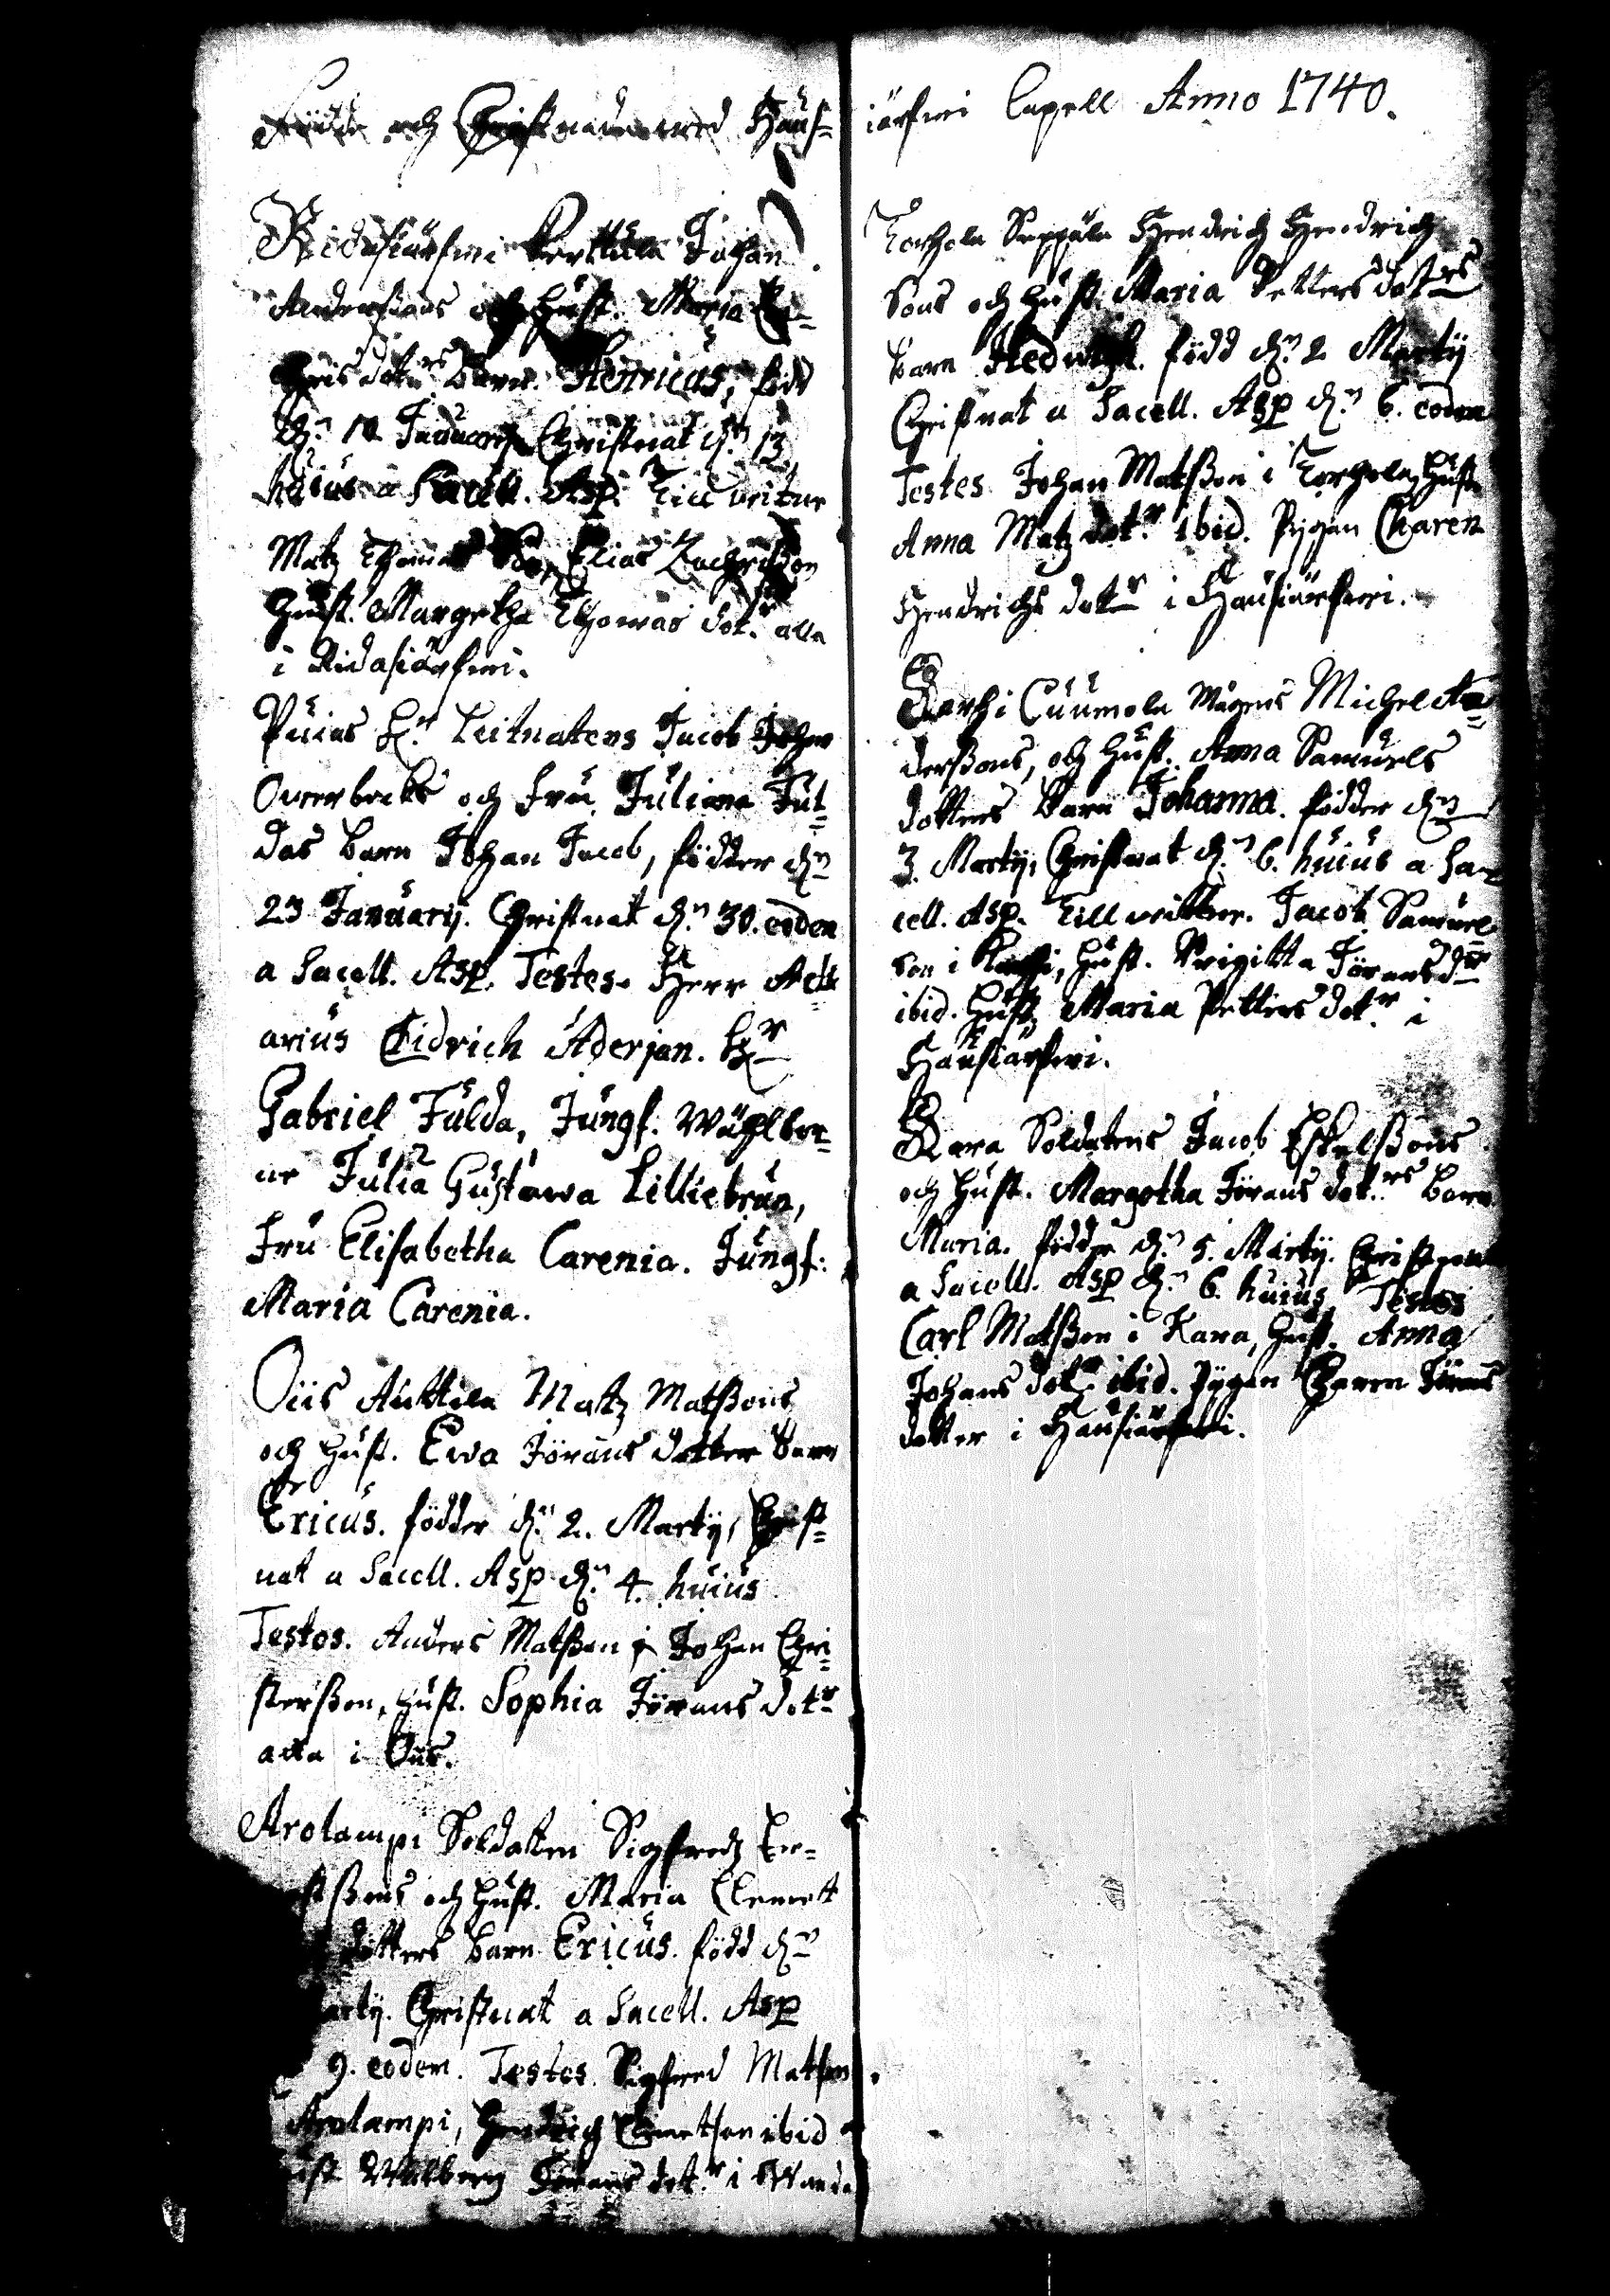 Födde och Christnade wed Haus-
Ridasiärfwi Perttula Johan
Anderssons och Hust. Maria
dotrs Barn. Henricus, född
dn 10 Januarij Christnat dn 13
huius a Sacell. Asp. Till witne
Matz Thomas Son, Elias Zachrisson
Hust. Margetha Thomas dotr alla
i Ridasiärfwi.
Puias Hr Leitnatens Jacob Johan
Overbecks och Fru Juliana Ful-
das barn Johan Jacob, födder dn
23 Januarij. Christnat dn 30. eodem
a Sacell. Asp. Testes. Herr Actu
arius Didrich Aderjan. Hr
Gabriel Fulda, Jungf. Wählbor-
ne Julia Gustawa Lilliebrun,
Fru Elisabetha Carenia. Jungf:
Maria Carenia.
Oiis Anttila Matz Matssons
och Hust. Ewa Jörans dotter barn
Ericus. födder dn 2. Martij, Christ-
nat a Sacell. Asp dn 4. huius
Testes. Anders Matsson i Johan Chri-
stersson, Hust. Sophia Jörans dotr
alla i Oiis.
Arolampi Soldaten Sigfredz
ssons och Hust. Maria Clemett
dotters barn Ericus. född dn
artij. Christnat a Sacell. Asp
9. eodem. Testes. Sigfred Matson
Arolampi, Hendrich Clemetson ibid
ust Walborg Jörans dotr i Wanda
iärfwi Capell Anno 1740.
Torhola Seppäla Hendrich Hendrich
Sons och Hust. Maria Petters dotrs
barn Hedwigh. född dn 2 Martij
Christnat a Sacell. Asp dn 6. eodem
Testes Johan Matsson i Torhola, Hust
Anna Matz dotr ibid. Pigan Charen
Hendrichs dotr i Hausiärfwi.
Karhi Cuumola Mågens Michel An-
derssons, och Hust. Anna Samuels
dotters barn Johanna. födder dn
3. Martij, Christnat dn 6. huius a Sa-
cell. Asp. Till wittne. Jacob Samuel
Son i Karhi, Hust. Brigitta Jörans dr
ibid. Hust. Maria Petters dotr i
Hausiärfwi.
Kara Soldatens Jacob Eskelssons
och Hust. Margetha Jörans dotrs barn
Maria. födder dn 5. Martij. Christnat
a Sacell. Asp dn 6. huius, Testes
Carl Matsson i Kara, Hust. Anna
Johans dotr ibid. Pigan Charen Jörans
dotter i Hausiärfwi.